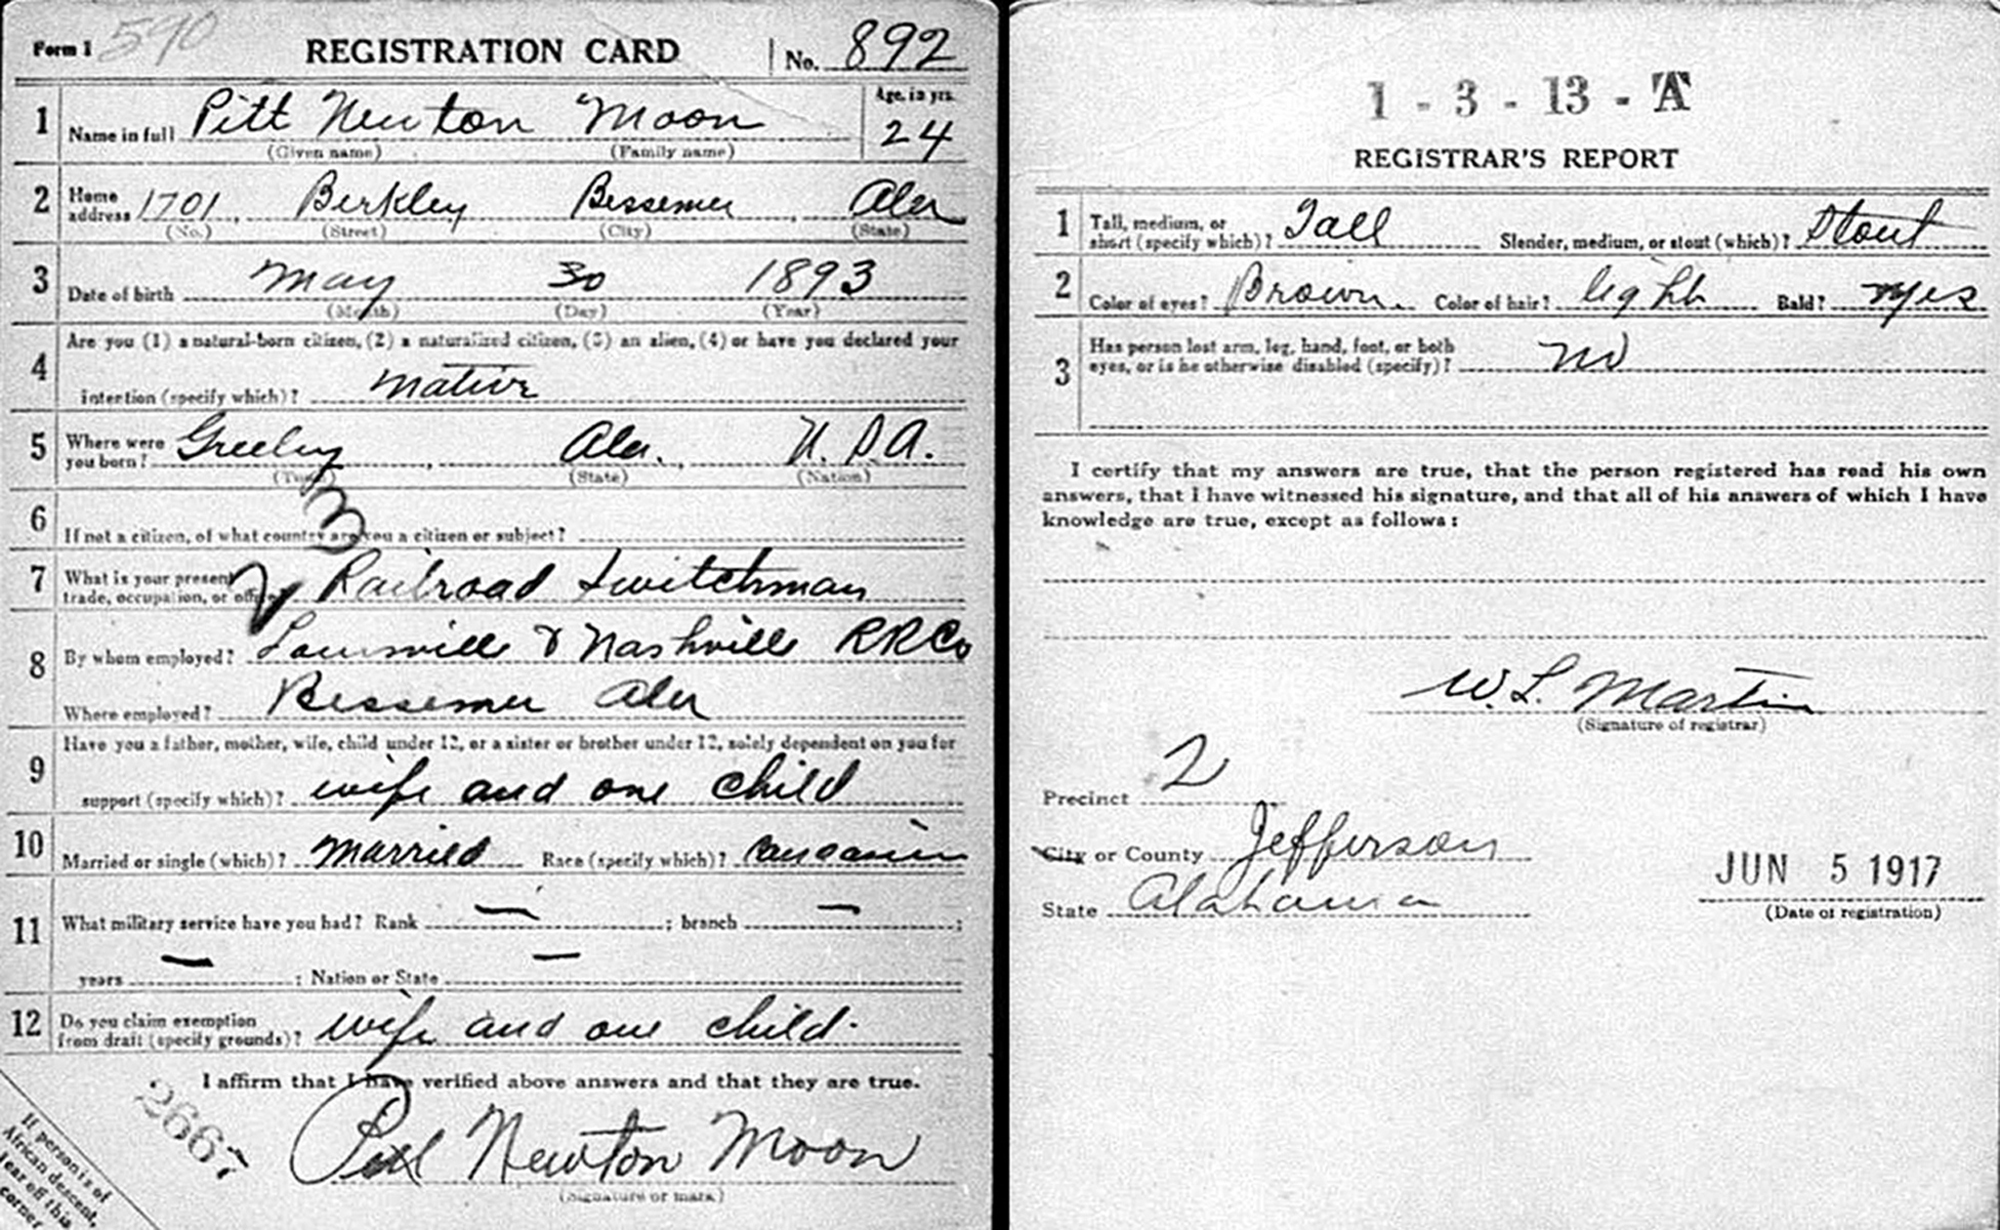 Form 1 590 REGISTRATION CARD No. 892
1 Name in full Pitt Newton Moon Age, in yrs. 24
(Given name) (Family name)
2 Home address 1701 Berkley Bessemer Ala
(No.) (Street) (City) (State)
3 Date of birth May 30 1893
(Month) (Day) (Year)
4 Are you (1) a natural-born citizen, (2) a naturalized citizen, (3) an alien, (4) or have you declared your
intention (specify which)? Native
5 Where were you born? Greeley Ala. U.S.A.
(Town) (State) (Nation)
3
6 If not a citizen, of what country are you a citizen or subject?
7 What is your present trade, occupation, or office? 2 Railroad Switchman
8 By whom employed? Louisville & Nashville RRCo
Where employed? Bessemer Ala
9 Have you a father, mother, wife, child under 12, or a sister or brother under 12, solely dependent on you for
support (specify which)? wife and one child
10 Married or single (which)? Married Race (specify which)? Caucasian
11 What military service have you had? Rank — ; branch — ;
years — ; Nation or State —
12 Do you claim exemption from draft (specify grounds)? wife and one child.
I affirm that I have verified above answers and that they are true.
2667
Pitt Newton Moon
(Signature or mark)
If person is of
African descent,
tear off this
corner
1 - 3 - 13 - A
REGISTRAR'S REPORT
1 Tall, medium, or short (specify which)? Tall Slender, medium, or stout (which)? Stout
2 Color of eyes? Brown. Color of hair? light Bald? yes
3 Has person lost arm, leg, hand, foot, or both
eyes, or is he otherwise disabled (specify)? no
I certify that my answers are true, that the person registered has read his own
answers, that I have witnessed his signature, and that all of his answers of which I have
knowledge are true, except as follows:
W. L. Martin
(Signature of registrar)
Precinct 2
City or County Jefferson
State Alabama
JUN 5 1917
(Date of registration)